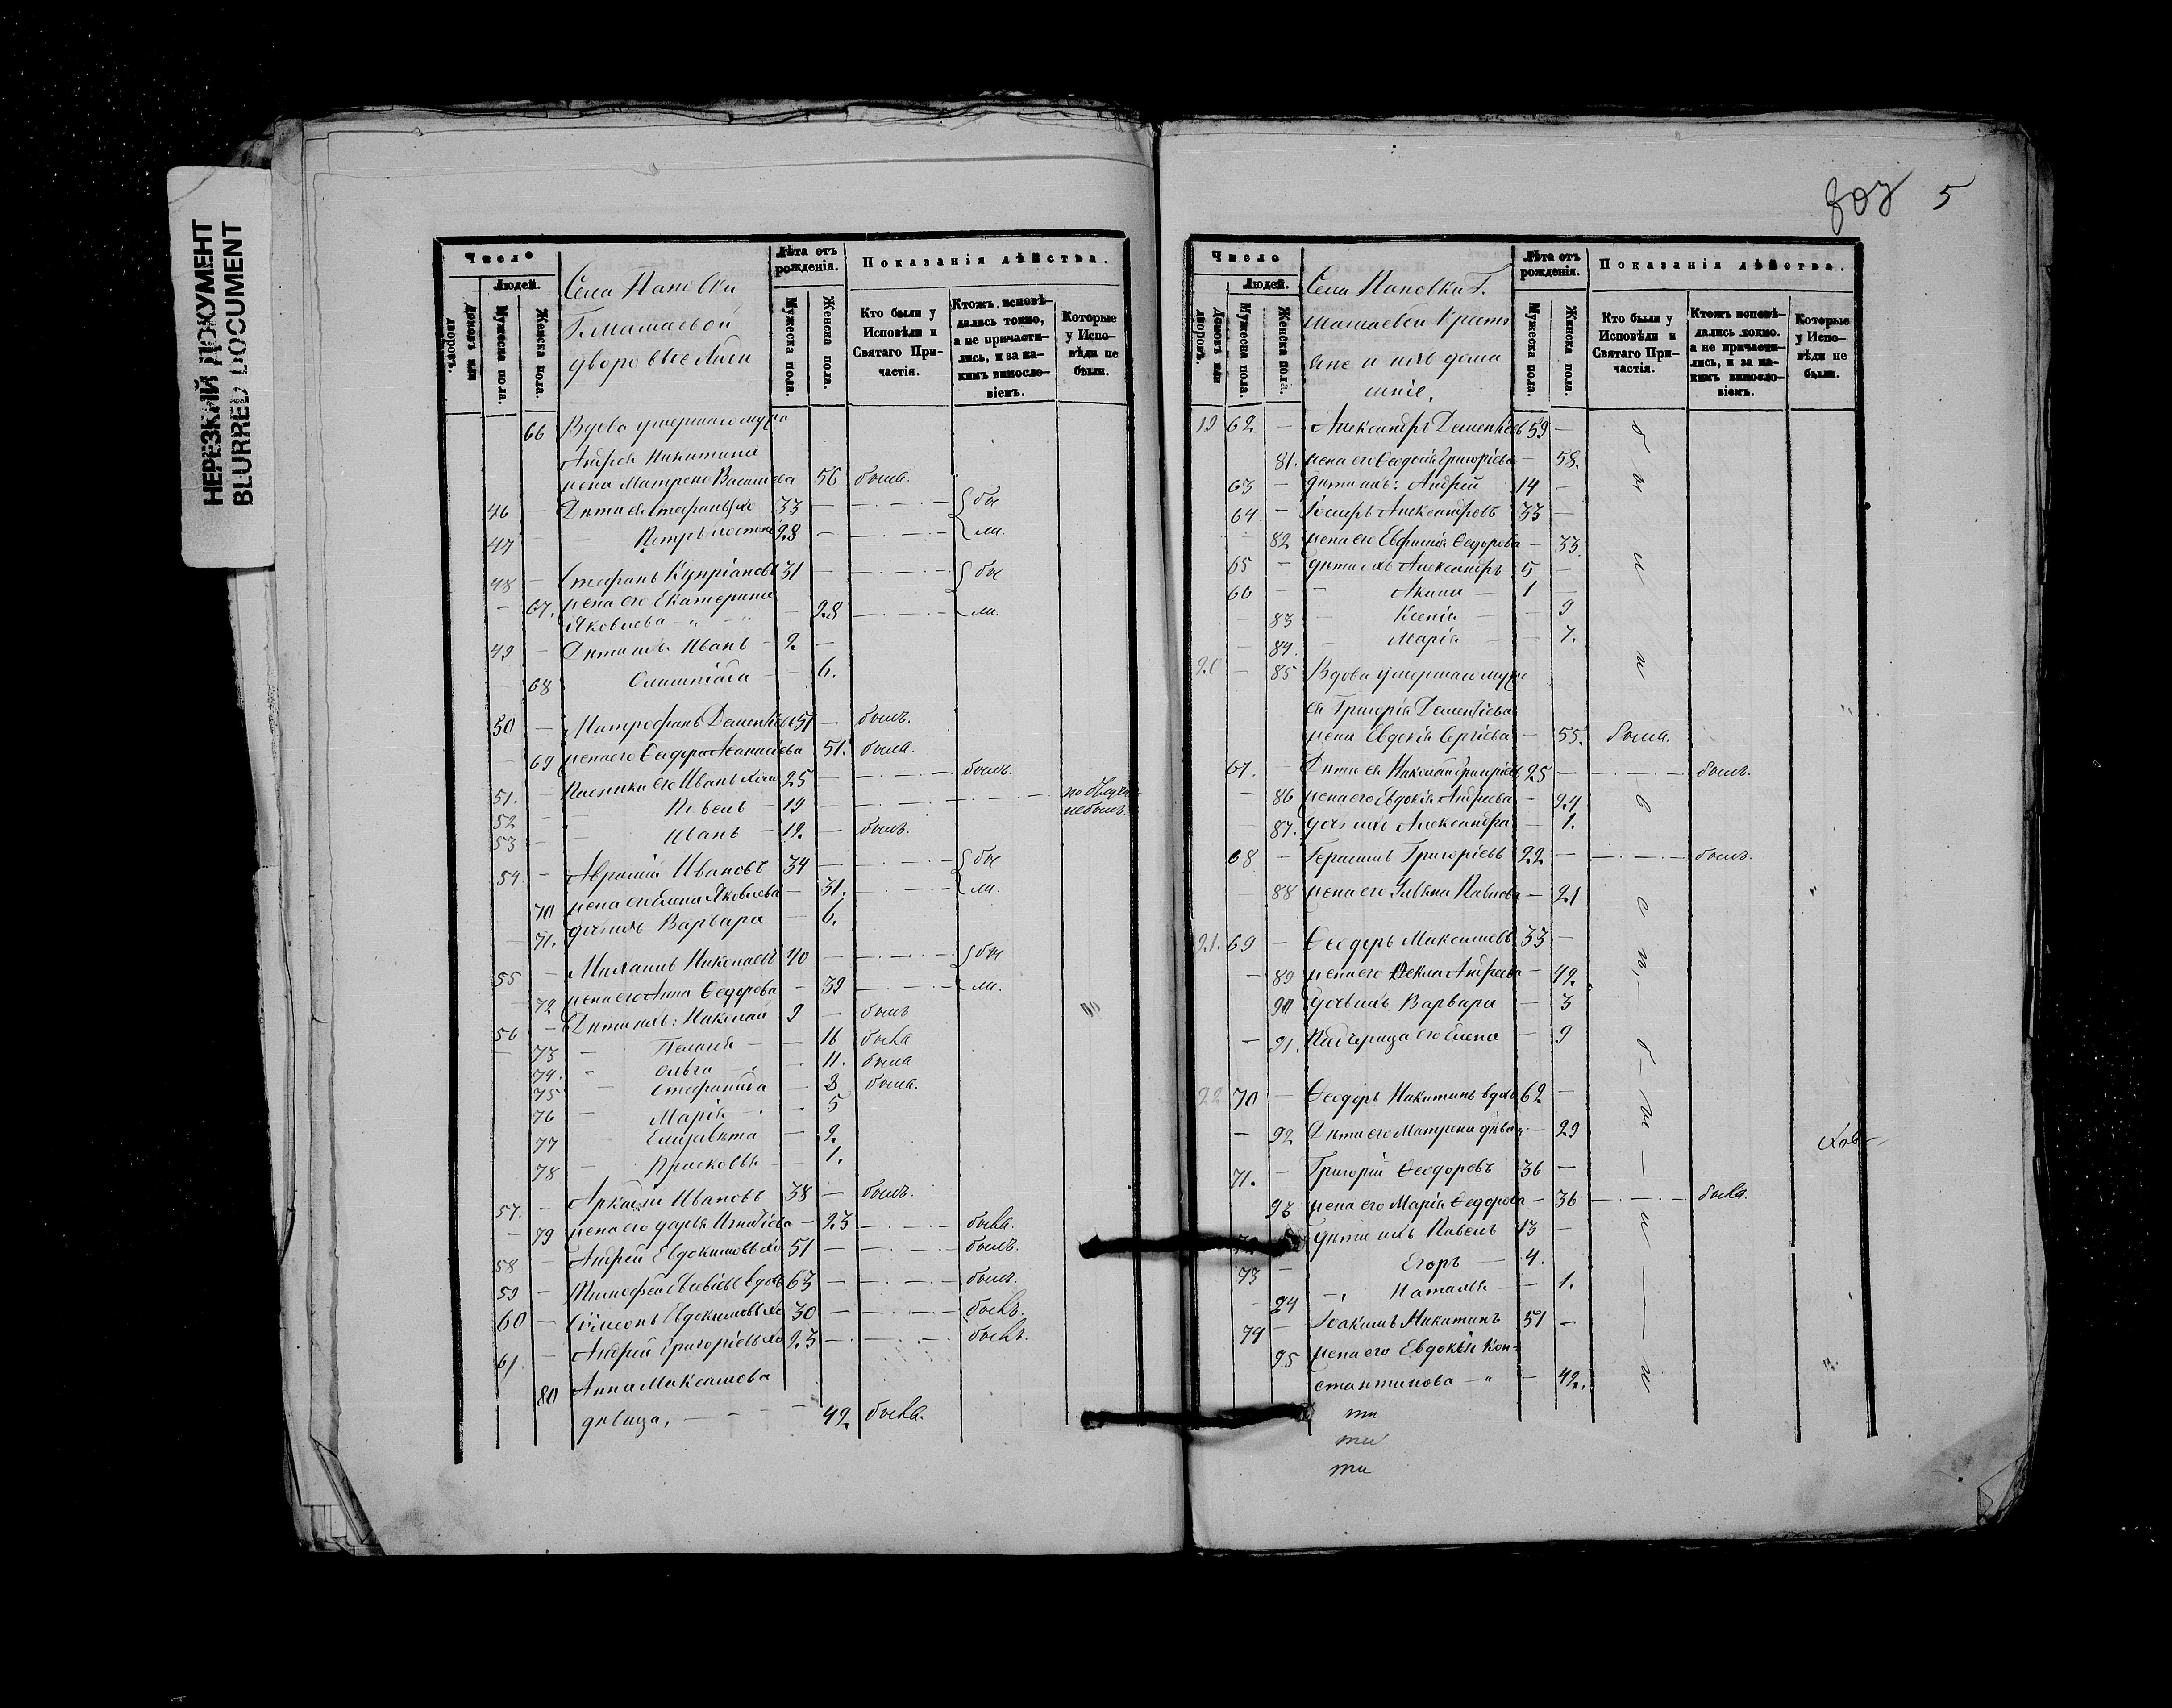 НЕРЕЗКИЙ ДОКУМЕНТ
BLURRED DOCUMENT
Число
Людей.
Домовъ или дворовъ.
Мужеска пола.
Женска пола.
Села Пановки
Г. Мамаевой
дворовые люди
Лѣта отъ рожденія.
Мужеска пола.
Женска пола.
Показанія дѣйства.
Кто были у Исповѣди и Святаго Причастія.
Ктожъ исповѣдались токмо, а не причастились, и за какимъ винословіемъ.
Которые у Исповѣди не были.
66 Вдова умершаго мужа
Андрея Никитина
жена Матрена Васильева 56 была.
46 - Дѣти ея Стефанъ хо 33 - {бы
47 - Петръ холостъ 28 - {ли.
48 - Стефанъ Купріановъ 31 - {бы
- 67. жена его Екатерина
Яковлева - 28 {ли.
49 - Дѣти ихъ Иванъ - 2 -
- 68 Олимпіада - 6.
50 - Митрофанъ Дементьевъ 51 - былъ.
- 69 жена его Ѳедора Аѳанасіева 51. была.
51. - Пасынки его Иванъ холо 25 - былъ.
52 - Павелъ - 19 - по отлучкѣ не былъ.
53 - Иванъ - 12. - былъ.
54. - Аврамій Ивановъ 34 - {бы
70 жена его Елена Яковлева - 31. {ли.
- 71. дочь ихъ Варвара - 6.
55 - Михаилъ Николаевъ 40 - {бы
- 72 жена его Анна Ѳедорова - 39 {ли.
56 - Дѣти ихъ: Николай 9 - былъ
- 73 - Пелагея - 16 была
74. - Ольга - 11. была
75 - Стефанида - 8 была.
76 - Марія - 5
77 - Елизавета - 2.
78 - Прасковья - 1.
57. - Аркадій Ивановъ 38 - былъ.
- 79 жена его Дарья Игнатіева - 23 была.
58 - Андрей Евдокимовъ хо 51 - былъ.
59 - Тимофей Евсевіевъ вдов 63 - былъ.
60 - Симеонъ Евдокимовъ хо 30 - былъ.
61. - Андрей Григоріевъ хо 23 - былъ.
80 Анна Максимова
дѣвица, - 42 была.
807 5
Число
Людей.
Домовъ или дворовъ.
Мужеска пола.
Женска пола.
Села Пановки Г.
Мамаевой Кресть
яне и ихъ дома
шніе.
Лѣта отъ рожденія.
Мужеска пола.
Женска пола.
Показанія дѣйства.
Кто были у Исповѣди и Святаго Причастія.
Ктожъ исповѣдались токмо. а не причастились, и за какимъ винословіемъ.
Которые у Исповѣди не были.
19 62 - Александръ Дементіевъ 59 -
81. жена его Ѳеодосія Григоріева - 58.
63 - Дѣти ихъ: Андрей 14 -
64 - Іосифъ Александровъ 33 -
- 82 жена его Евфимія Ѳедорова - 33.
65 - дѣти ихъ Александръ 5 -
66 - Акимъ - 1 -
- 83 - Ксенія - 9
- 84. - Марія - 7.
20 - 85 Вдова умершаго мужа
ея Григорія Дементіева
жена Евдокія Сергіева - 55. была.
67. - Дѣти ея Николай Григоріевъ 25 - былъ.
- 86 жена его Евдокія Андреева - 24
- 87. дочь ихъ Александра - 1.
68 - Герасимъ Григоріевъ 22 - былъ.
- 88 жена его Ульяна Павлова - 21
21. 69 - Ѳеодоръ Максимовъ 33 -
- 89 жена его Ѳекла Андреева - 42.
90 дочь ихъ Варвара - 3
- 91. Падчерица его Елена - 9
22 70 - Ѳеодоръ Никитинъ вдов 62 -
- 92 Дѣти его Матрена дѣвица - 29
71. - Григорій Ѳеодоровъ 36 -
93 жена его Марія Ѳедорова - 36 была.
72 - дѣти ихъ Павелъ 13 -
73 - Егоръ - 4.
- 94 - Наталья - 1.
74 - Іоакимъ Никитинъ 51 -
95 жена его Евдокія Кон-
стантинова - 42.
ти
ти
ти